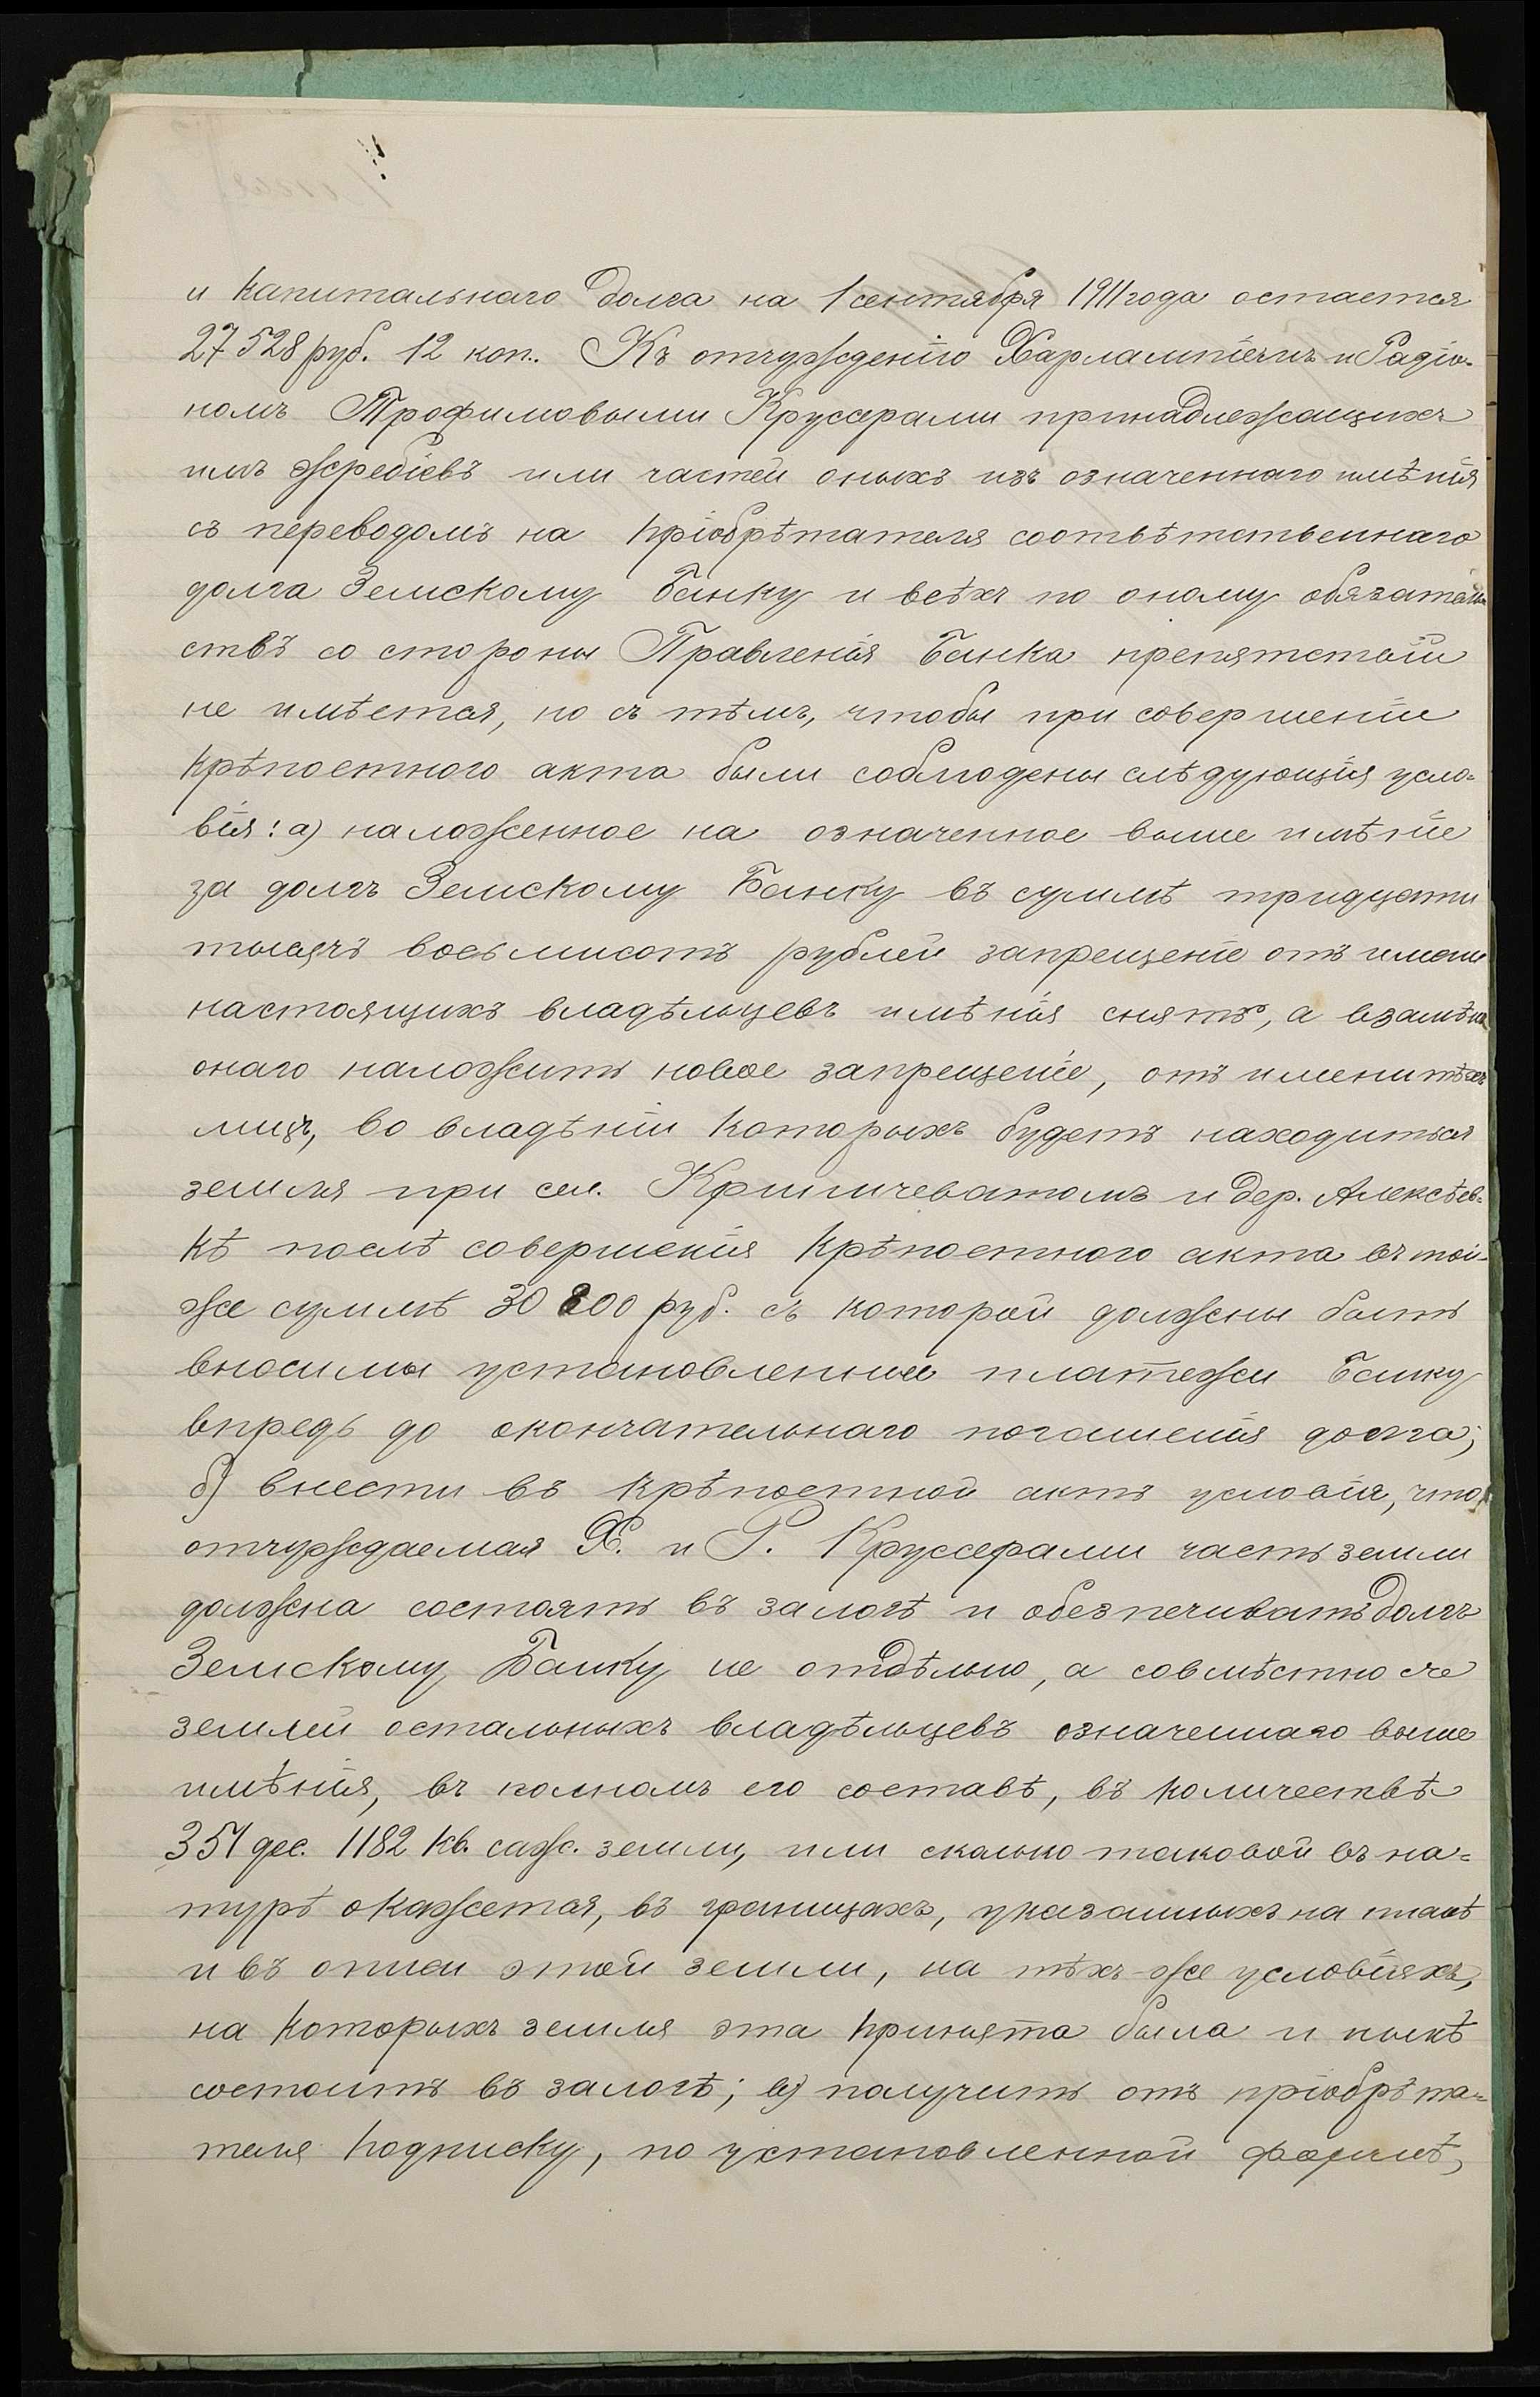 и капитальнаго долга на 1 сентября 1911 года остается
27528 руб. 12 коп.. Къ отчужденію Харлампіемъ и Радіо-
номъ Трофимовыми Круссерами принадлежащихъ
имъ жребіевъ или частей оныхъ изъ означеннаго имѣнія
съ переводомъ на пріобрѣтателя соотвѣтственнаго
долга Земскому Банку и всѣхъ по оному обязатель
ствъ со стороны Правленія Банка препятствій
не имѣется, но съ тѣмъ, чтобы при совершеніи
крѣпостного акта были соблюдены слѣдующія усло-
вія: а) наложенное на означенное выше имѣніе
за долгъ Земскому Банку въ суммѣ тридцати
тысячъ восьмисотъ рублей запрещеніе отъ имени
настоящихъ владѣльцевъ имѣнія снять, а взамѣнъ
онаго наложить новое запрещеніе, отъ имени тѣхъ
лицъ, во владѣніи которыхъ будетъ находиться
земля при сел. Криничеватомъ и дер. Алексѣев-
кѣ послѣ совершенія крѣпостного акта въ той-
же суммѣ 30800 руб. съ которой должны быть
вносимы установленные платежи Банку
впредь до окончательнаго погашенія долга;
б) внести въ крѣпостной актъ условія, что
отчуждаемая Х. и Р. Круссерами часть земли
должна состоять въ залогѣ и обезпечивать долгъ
Земскому Банку не отдѣльно, а совмѣстно съ
землей остальныхъ владѣльцевъ означеннаго выше
имѣнія, въ полномъ его составѣ, въ количествѣ
351 дес. 1182 кв. саж. земли, или сколько таковой въ на-
турѣ окажется, въ границахъ, указанныхъ на планѣ
и въ описи этой земли, на тѣхъ-же условіяхъ,
на которыхъ земля эта принята была и нынѣ
состоитъ въ залогѣ; в) получить отъ пріобрѣта-
теля подписку, по установленной формѣ,